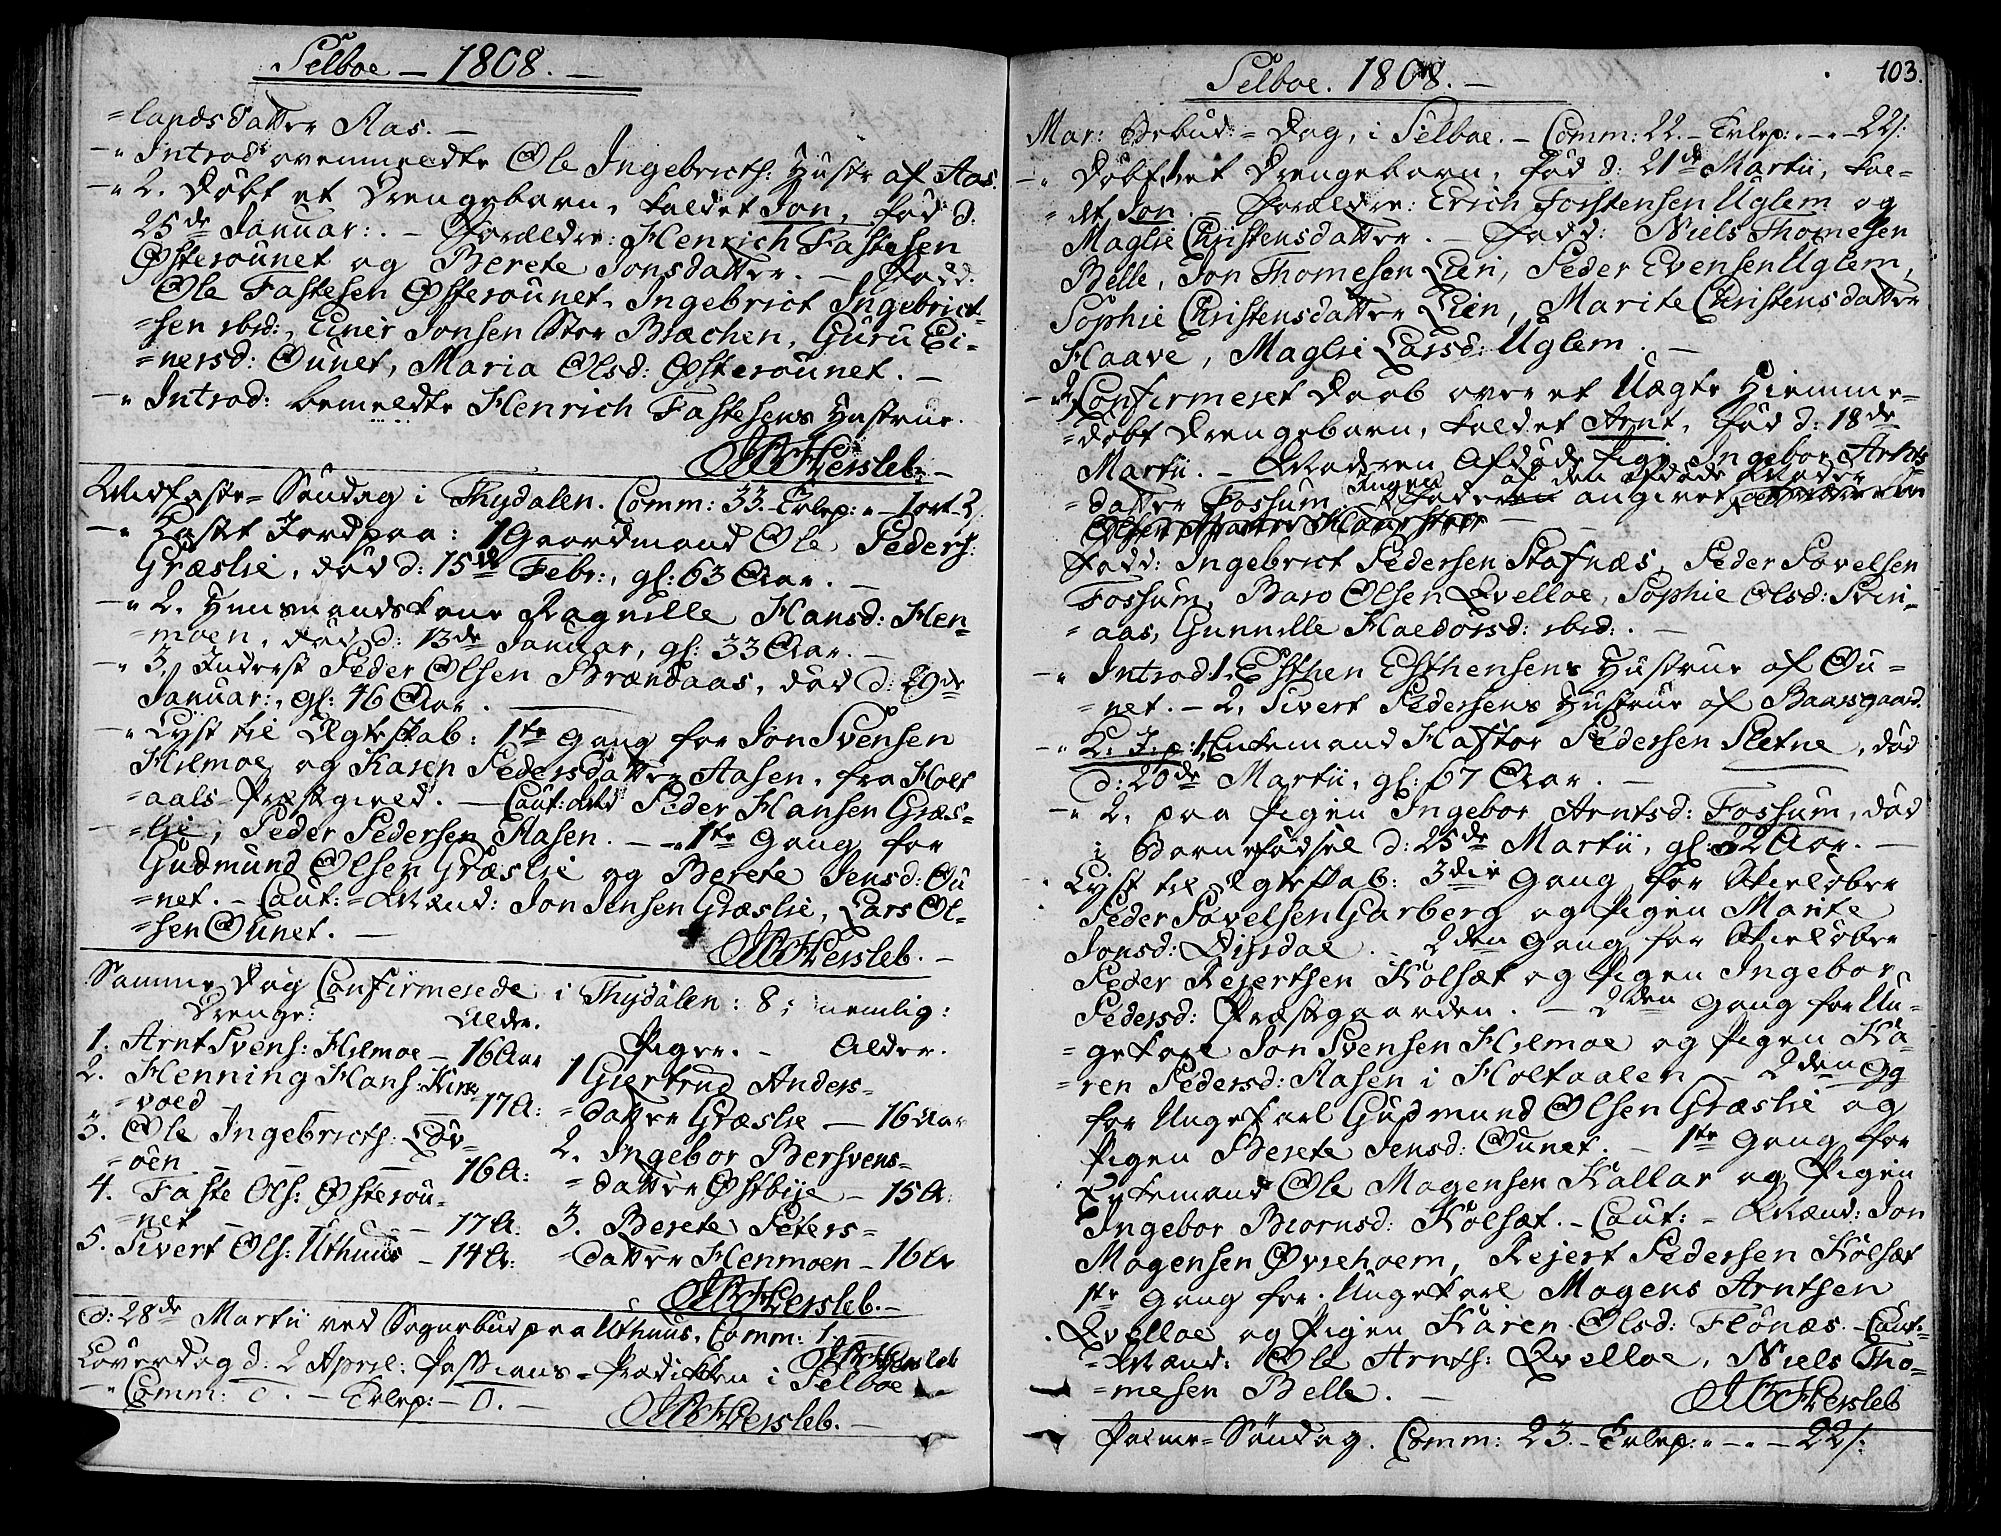 Selboe – 1808. –
=landsdatter Aas. –
–„ Introd: ovenmeldte Ole Ingebricths: Hustr af Aas.
–„ 2. Døbt et Drengebarn, kaldet Jon, fød d:
25de Januar:. – Forældre: Henrich Fastesen
Østerounet og Berete Jonsdatter. – Fadd:
Ole Fastesen Østerounet, Ingebrict Ingebrict=
=sen ibid:, Einer Jonsen Stor Bræchen, Guru Ei=
=nersd: Ounet, Maria Olsd: Østerounet. –
–„ Introd: bemeldte Henrich Fastesens Hustrue.
Hersleb. –
Midfaste=Søndag i Thydalen. Comm: 33. – Exlep: „ – 1 ort
–„ Kastet Jord paa: 1 Gaardmand Ole Peders:
Græslie, død d: 15de Febr:, gl: 63 Aar. –
–„ 2. Huusmandskone Ragnille Hansd: Hen=
=moen, død d: 13de Januar, gl: 33 Aar. –
–„ 3, Inderst Peder Olsen Brændaas, død d: 29de
Januar:, gl: 46 Aar. –
–„ Lyst til Ægteskab: 1ste Gang for Jon Svensen
Hilmoe, og Karen Pedersdatter Aasen, fra Holt
=aals Præstgield. – Caut: Mænd Peder Hansen Græs=
=lie, Peder Pedersen Aasen. – „ 1ste Gang for
Gudmund Olsen Græslie og Berete Jensd: Ou
=net. – Caut:=Mænd: Jon Jensen Græslie, Lars Ol=
=sen Ounet. –
Hersleb. –
Samme Dag Confirmerede i Thydalen: 8; nemlig:
Drenge: Alder.
Piger. – Alder.
1. Arnt Svens: Hilmoe – 16 Aar
2. Henning Hans: Kirk=
=vold – 17 A:
3. Ole Ingebricths: Løv=
=øen – – 16 A:
4. Faste Ols: Østerou=
=net – – 17 A:
5. Sivert Ols: Uthuus – 14 A:
1 Giertrud Anders=
=datter Græslie – 16 Aar
2. Ingebor Bersvens=
=datter Østbije – 15 A:
3. Berete Peters=
=datter Henmoen – 16 Ar
Hersleb. –
d: 28de Martii ved Sognebud paa Uthuus. Comm: 1.
Hersleb
Løverdag d: 2 April: Passions=Prædiken i Selboe
–„ Comm: 0. – Exlep: – 0. –
Hersleb. –
Selboe. 1808. –
103.
Mar: Bebud:=Dag, i Selboe. – Comm: 22. – Exlep: „ – „ – 22 s:
–„ Døbt 1 et Drengebarn, fød d: 21de Martii, kal=
=det Jon. – Forældre: Erich Torstensen Uglem og
Maglie Christensdatter. – Fadd: Niels Thomesen
Belle, Jon Thomesen Lien, Peder Evensen Uglem,
Sophie Christensdatter Lien, Marite Christensdatter
Haave, Maglie Larsd: Uglem. –
–„ 2, Confirmeret Daab over et Uægte Hiemme=
=døbt Drengebarn, kaldet Arnt, fød d: 18de
Martii. – Moderen Afdøde Pige Ingebor Arnts
=datter Fossum, Ingen Fader af den afdøde Moder angivet
Fadd: Ingebrict Pedersen Stafnæs, Peder Povelsen
Fossum, Baro Olsen Qvelloe, Sophie Olsd: Svin=
=aas, Gunnille Haldorsd: ibid:. –
–„ Introd: 1. Esthen Esthensens Hustrue af Ou=
=net. – 2, Sivert Pedersens Hustrue af Baarsgaard.
–„ K. J. p: 1, Enkemand Hastor Pedersen Sletne, død
d: 20de Martii, gl: 67 Aar. –
–„ 2, paa Pigen Ingebor Arntsd: Fossum, død
i Barnefødsel d: 25de Martii, gl: 32 Aar. –
Lyst til Ægteskab: 3die Gang for Skieløber
Peder Povelsen Garberg og Pigen Marite
Jonsd: Dijrdal. – 2den Gang for Skieløber
Peder Rejertsen Kolsæt og Pigen Ingebor
Pedersd: Præstgaarden. – 2den Gang for Un=
=gekarl Jon Svensen Hilmoe og Pigen Ka=
=ren Pedersd: Aasen i Holtaalen – 2den Gg
for Ungekarl Gudmund Olsen Græslie og
Pigen Berete Jensd: Ounet. – 1ste Gang for
Enkemand Ole Mogensen Kallar og Pigen
Ingebor Biornsd: Kolsæt. – Caut:=Mænd: Jon
Mogensen Øvrehoem, Rejert Pedersen Kolsæt
1ste Gang for Ungekarl Mogens Arntsen
Qvelloe og Pigen Karen Olsd: Flønæs – Caut:=
=Mænd: Ole Arnths: Qvelloe, Niels Tho=
=mesen Belle. –
Hersleb
Palme=Søndag. Comm: 23. – Exlep: „ – „ – 22 s: